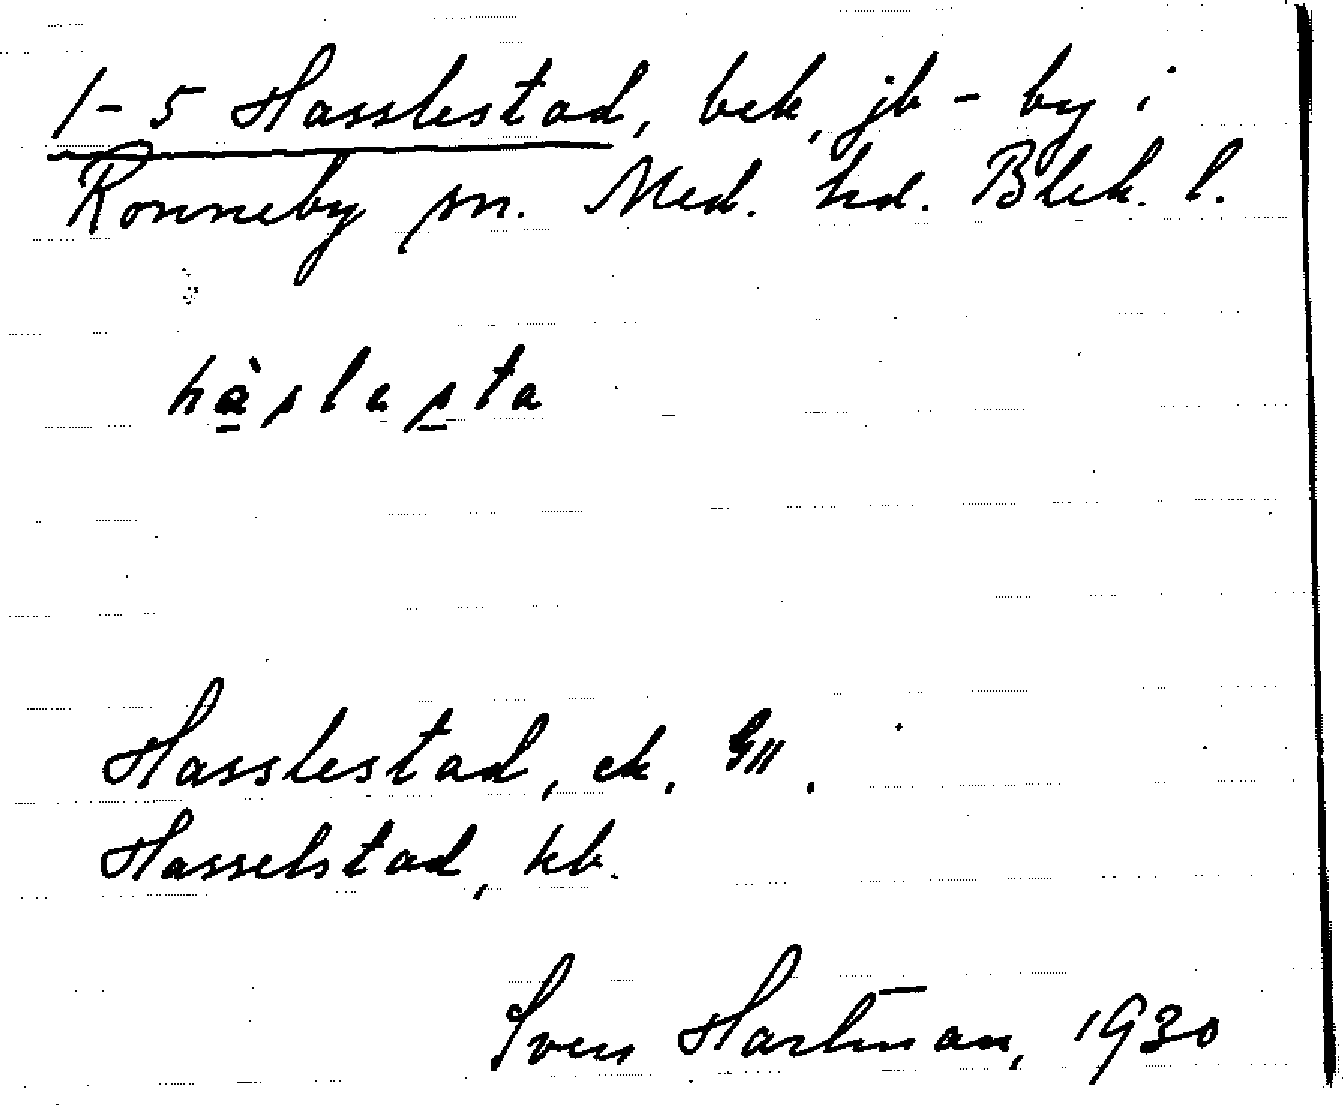 1-5 Hasslestad, bek, jb-by i
Ronneby sn. Med. hd. Blek. l.
hàslasta
Hasslestad, ek.
Hasselstad, kb.
Sven Hartman, 1930